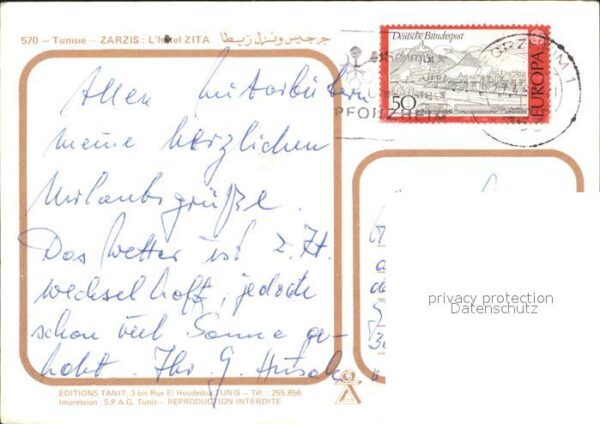 570 – Tunisie – ZARZIS : L'hôtel ZITA جرجيس ونزل زيطا
Deutsche Bundespost
50
EUROPA
PFORZHEIM
Allen Mitarbeitern
meine herzlichen
Urlaubsgrüße.
Das Wetter ist z. Zt.
wechselhaft, jedoch
schon viel Sonne ge-
habt. Ihr G.
privacy protection
Datenschutz
EDITIONS TANIT, 3 bis Rue El Houdeibia TUNIS - Tél. : 255.856
Impression : S.P.A.G. Tunis - REPRODUCTION INTERDITE